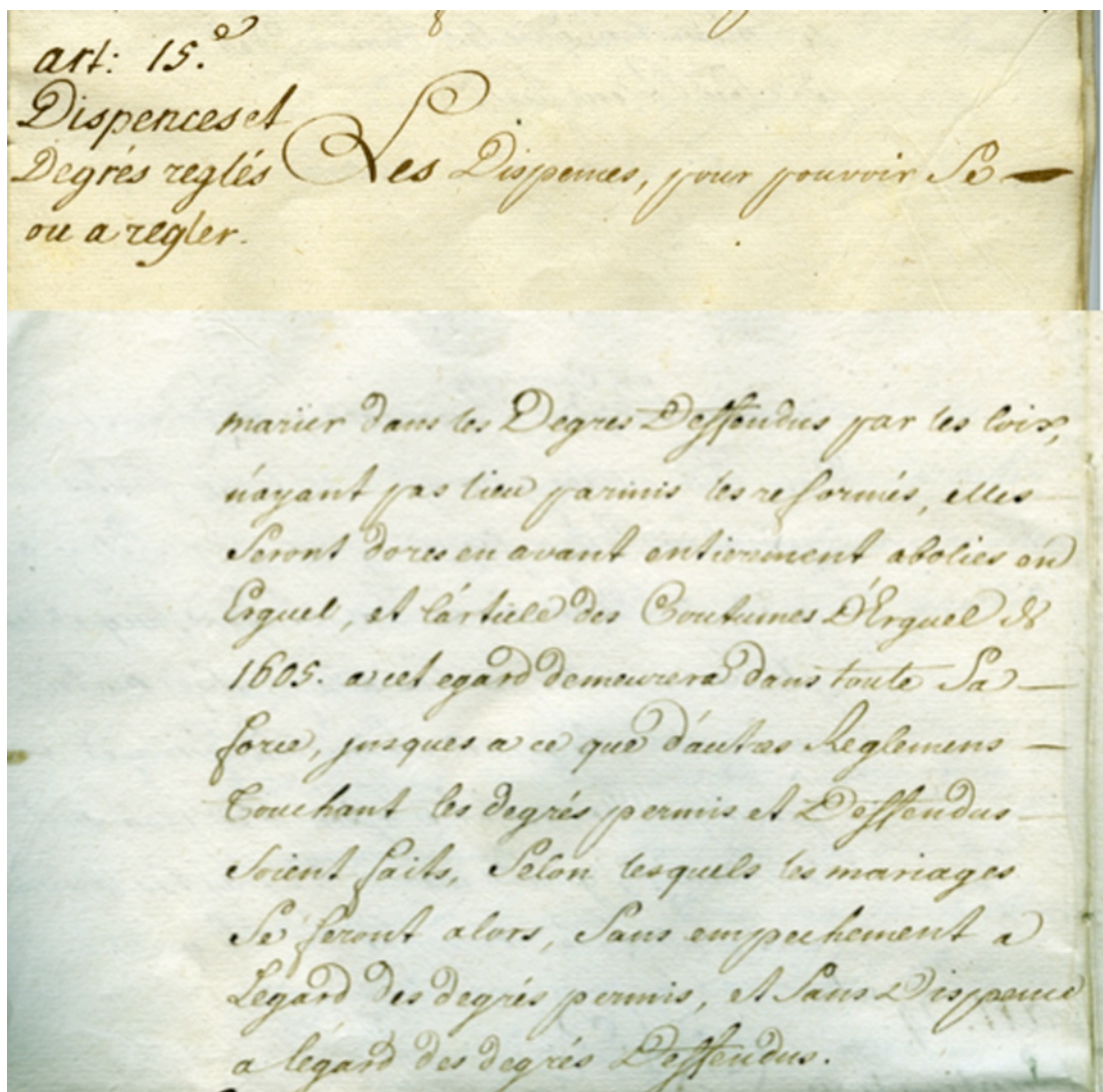 art: 15.e
Dispences et
Degrés reglés
ou a regler.
Les Dispences, pour pouvoir Se
marier dans les Degres Deffendus par les loix,
n'ayant pas lieu parmis les reformés, elles
Seront dores en avant entierement abolies en
Erguel, et l'article des Coutumes D'Erguel de
1605. a cet egard demeurera dans toute Sa
force, jusques a ce que d'autres Reglemens
Touchant les degrés permis et Deffendus
Soient faits, Selon lesquels les mariages
Se feront alors, Sans empechement a
Legard des degrés permis, et Sans Dispence
a légard des degrés Deffendus.